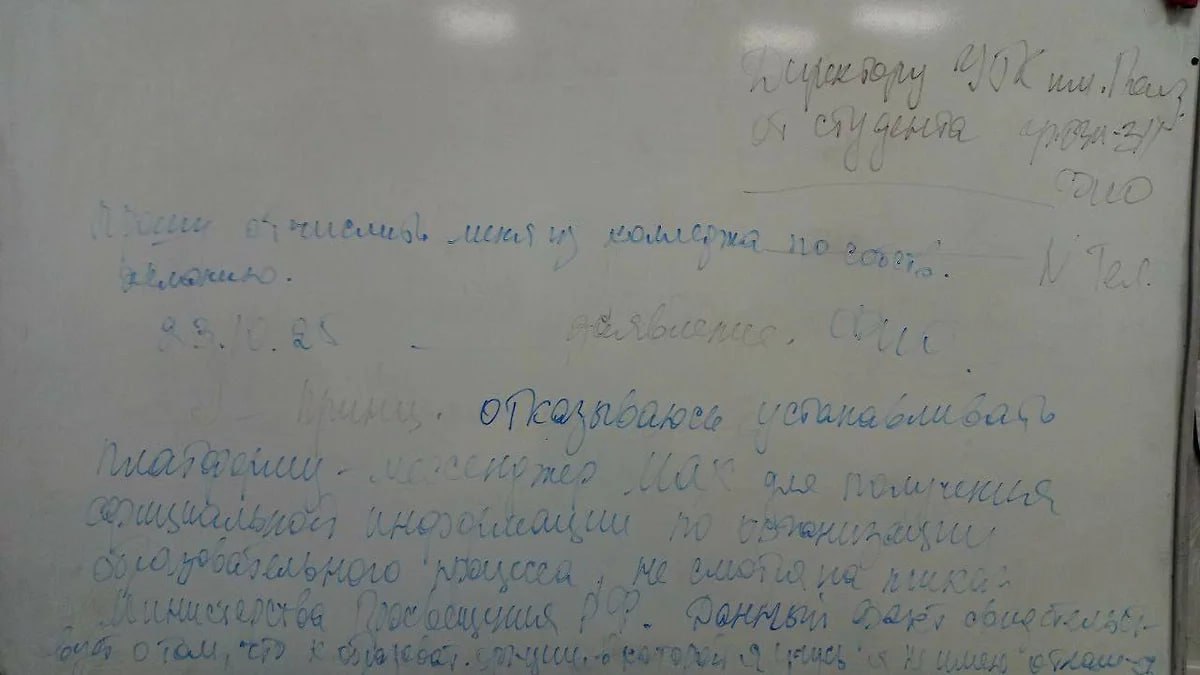 Директору УПК им. Ползу
от студента гр. ОЗИ-317
ФИО
Прошу отчислить меня из колледжа по собств.
желанию.
N тел.
23.10.25
заявление.
Принц. отказываюсь устанавливать
платформу - мессенджер МАХ для получения
официальной информации по организации
образовательного процесса, не смотря на приказ
Министерства Просвещения РФ. Данный факт свидетельст-
вует о том, что к образоват. организации в которой я учусь я не имею отноше-